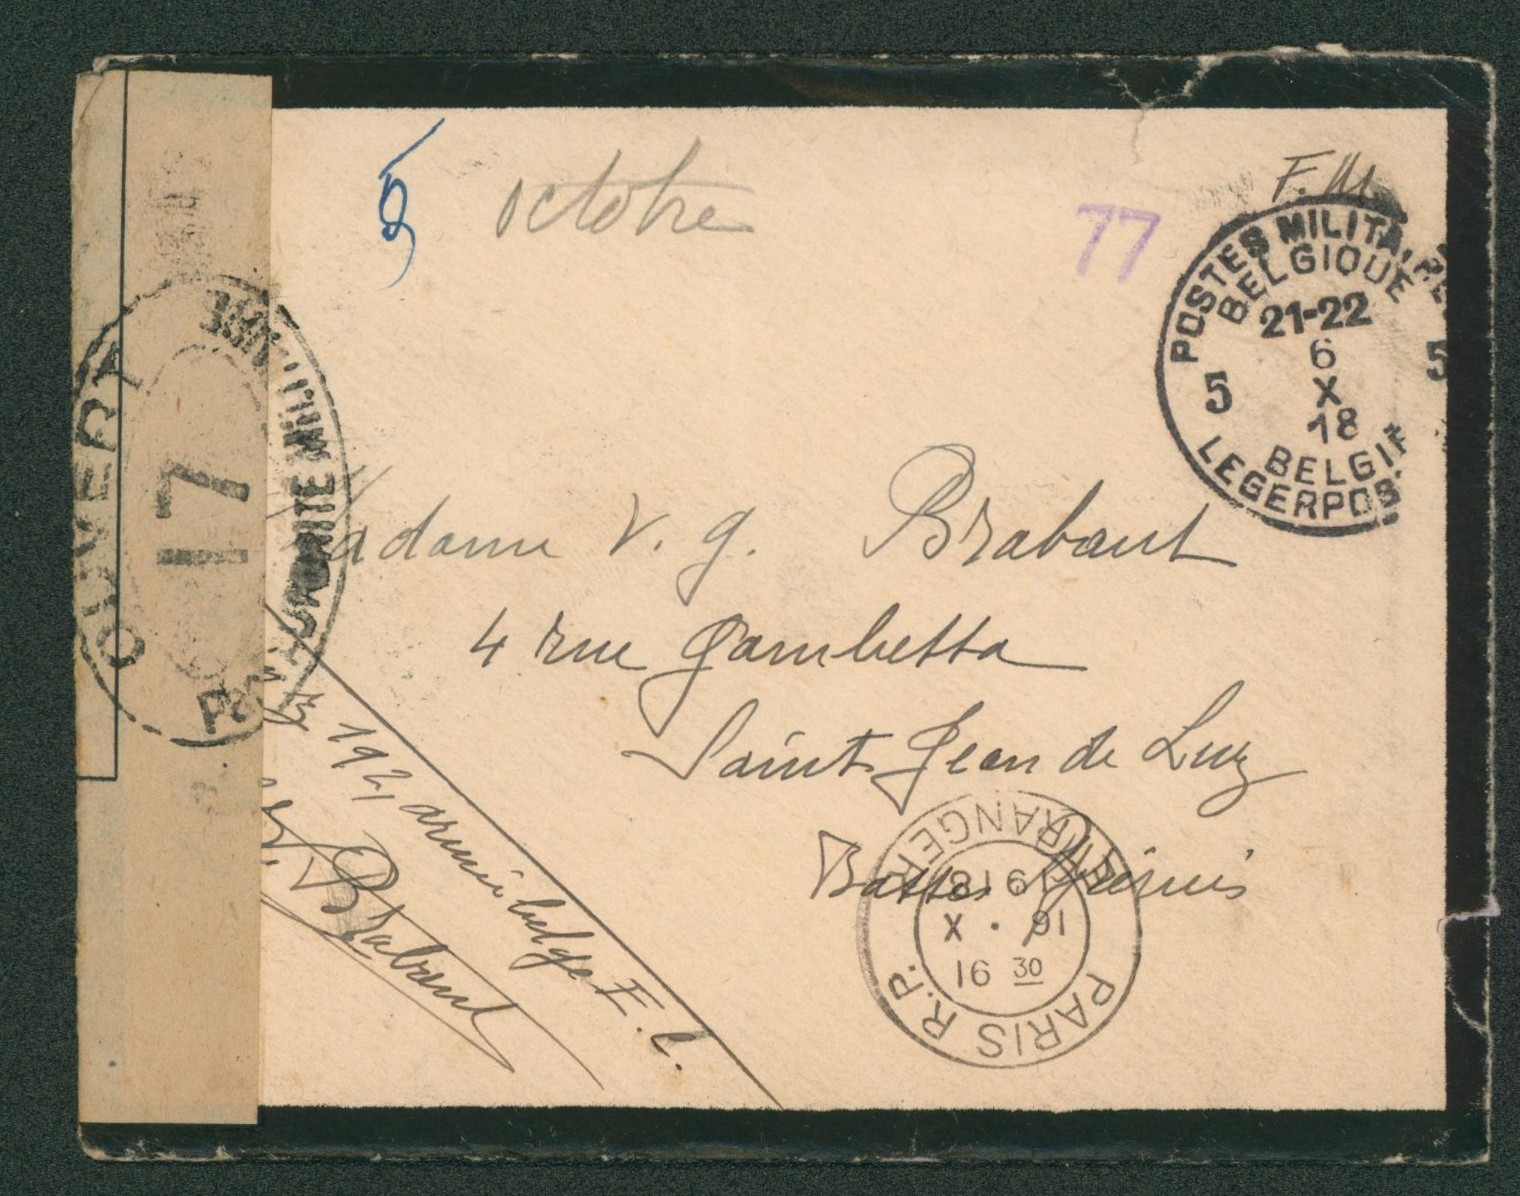 5 octobre
77
F.M.
POSTES MILITAIRES
BELGIQUE
21-22
6
X
18
5 5
BELGIË
LEGERPOST
OUVERT
17
PAR L'AUTORITE MILITAIRE
Madame V. G. Brabant
4 rue Gambetta
Saint Jean de Luz
Basses Pyrénées
192, armée belge E. C.
Brabant
PARIS R.P.
ETRANGER
16 30
16 . X
1918